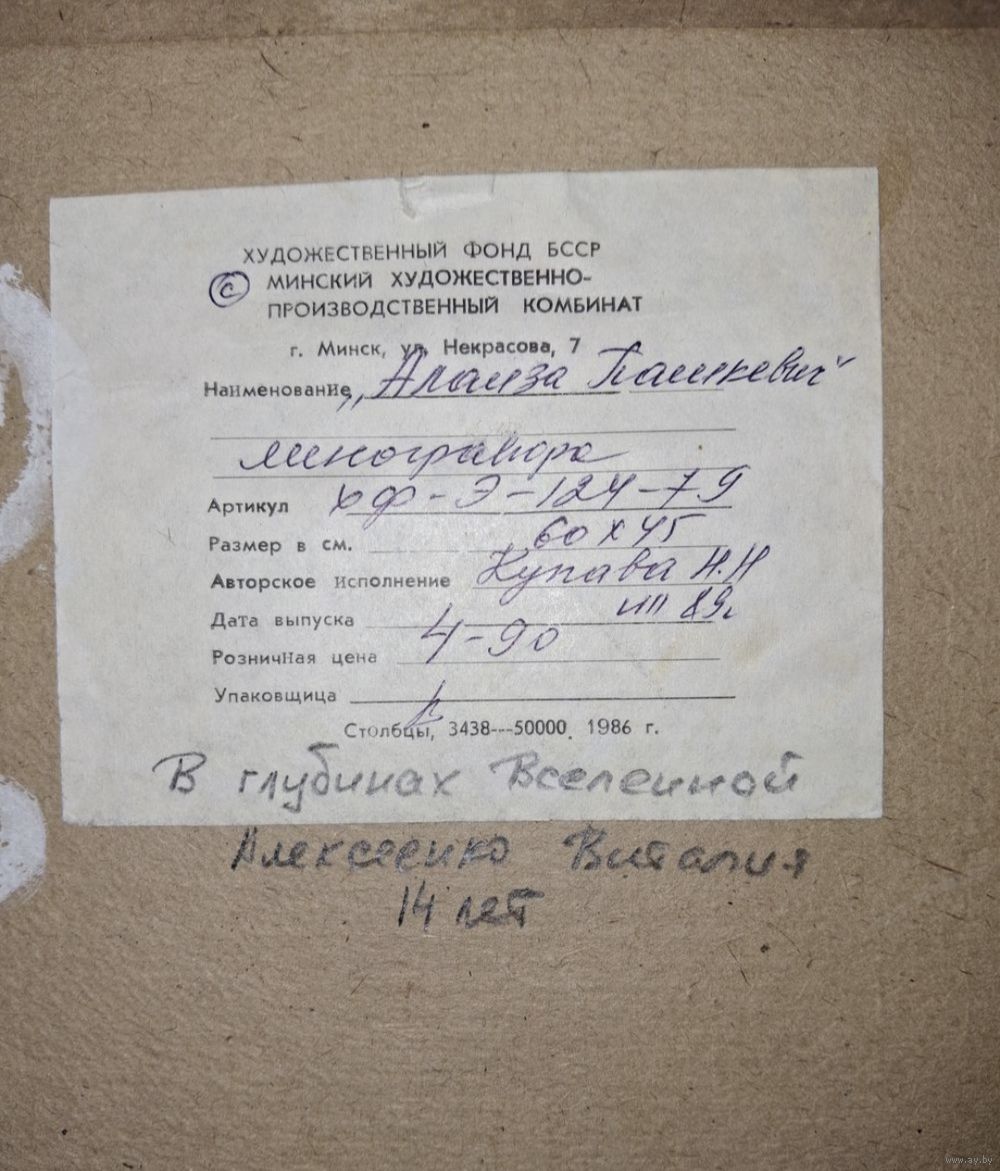 ХУДОЖЕСТВЕННЫЙ ФОНД БССР
© МИНСКИЙ ХУДОЖЕСТВЕННО-
ПРОИЗВОДСТВЕННЫЙ КОМБИНАТ
г. Минск, ул. Некрасова, 7
Наименование „Алаиза Пашкевич"
линогравюра
Артикул ХФ-Э-124-79
Размер в см. 60х45
Авторское исполнение Купава Н.Н
Дата выпуска 89г
Розничная цена 4-90
Упаковщица
Столбцы, 3438---50000. 1986 г.
В глубинах Вселенной
Алексеенко Виталия
14 лет
www.ay.by